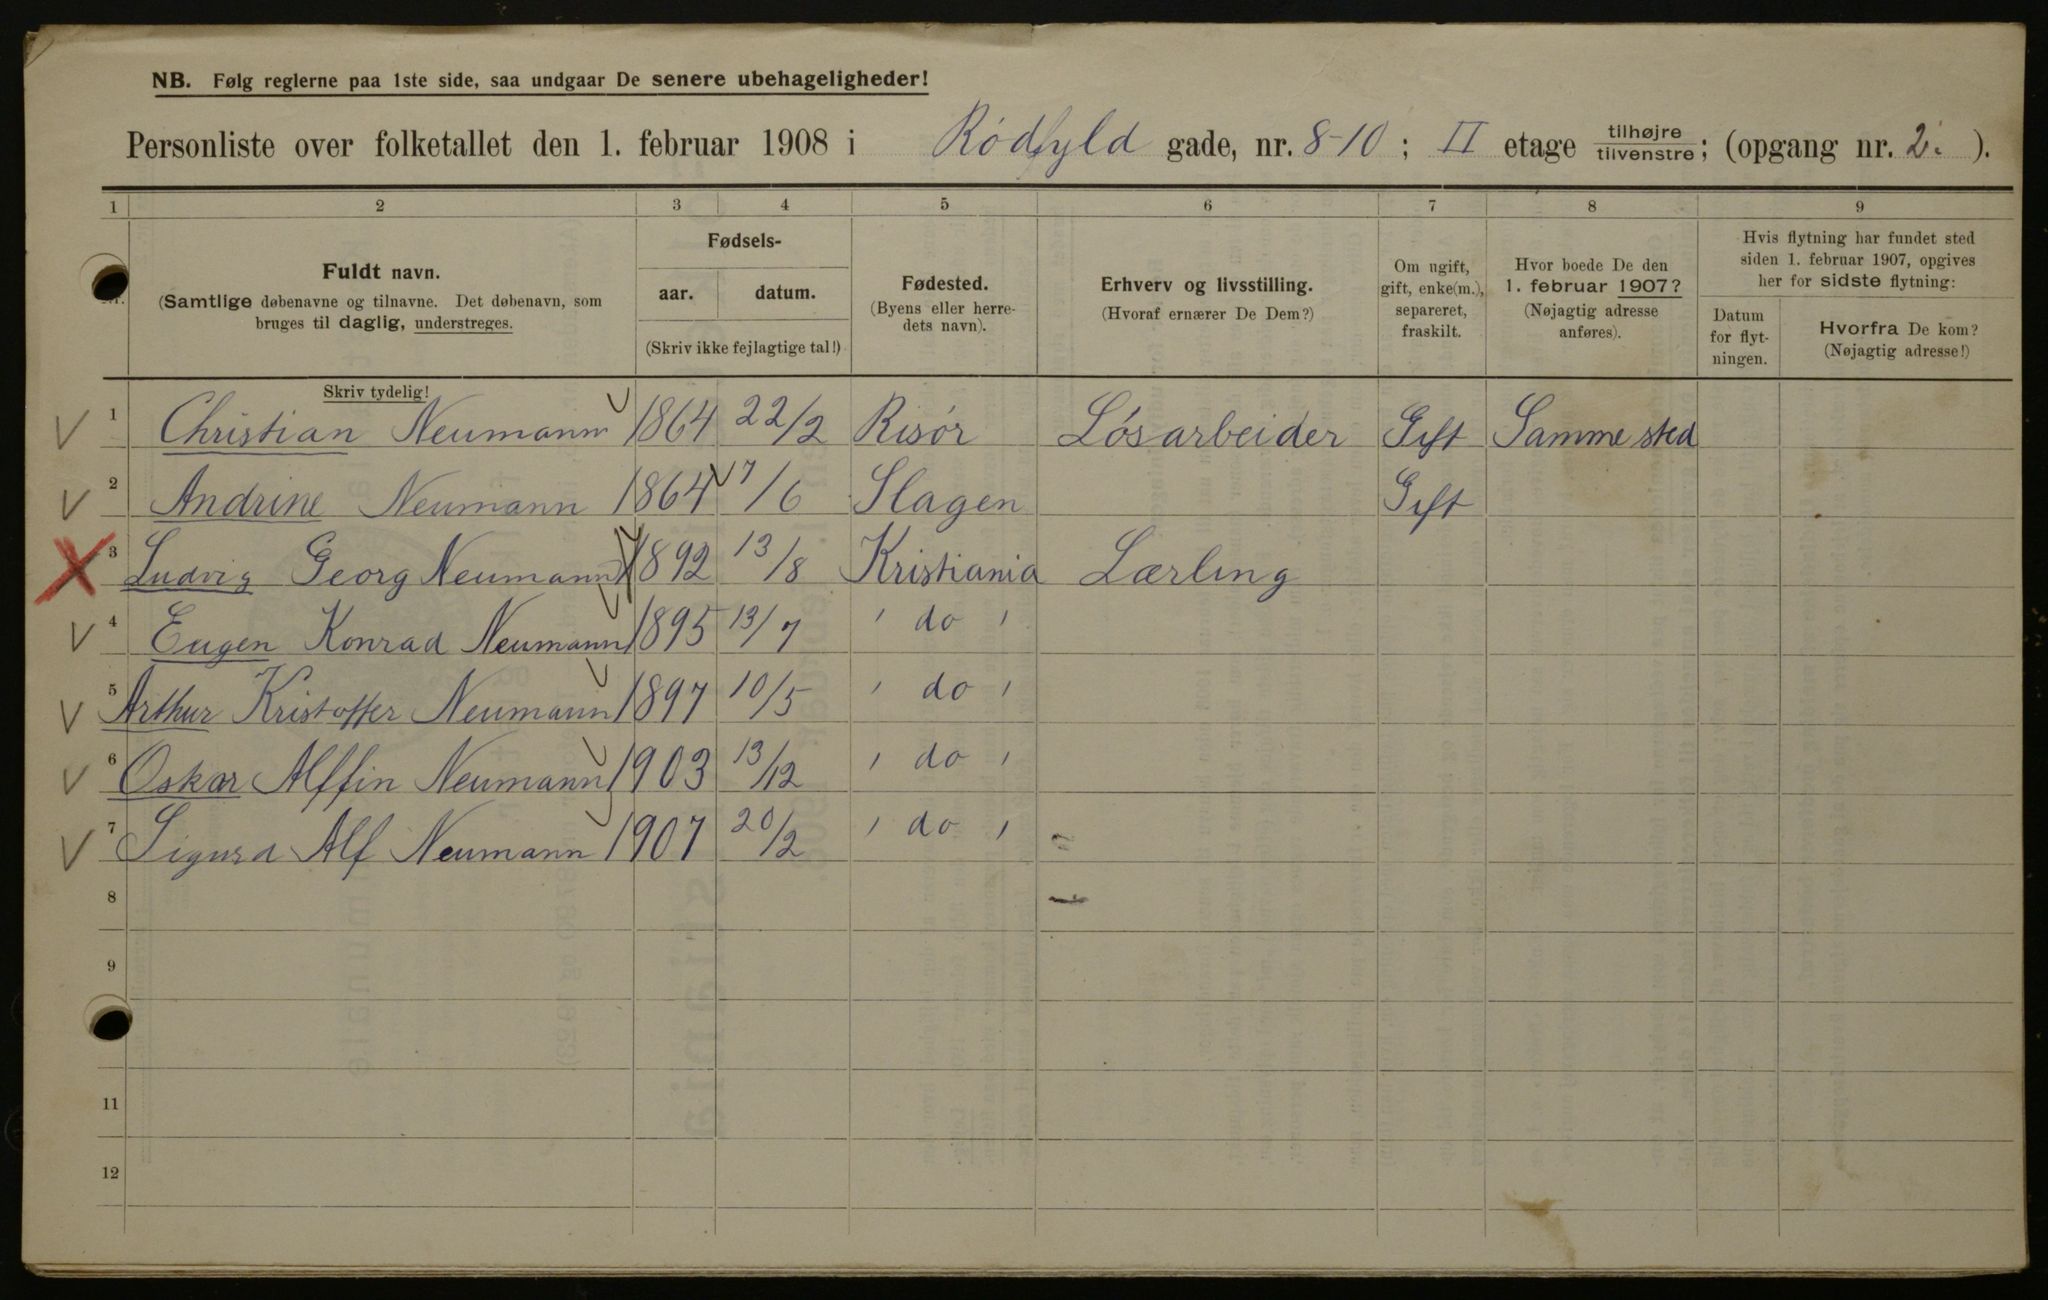 NB. Følg reglerne paa 1ste side, saa undgaar De senere ubehageligheder!
Personliste over folketallet den 1. februar 1908 i Rødfyld gade, nr. 8-10 ; II etage tilhøjre/tilvenstre; (opgang nr. 2. ).
1 2 3 4 5 6 7 8 9
Nr. Fuldt navn. (Samtlige døbenavne og tilnavne. Det døbenavn, som bruges til daglig, understreges.
Fødsels- aar. datum. (Skriv ikke fejlagtige tal!)
Fødested. (Byens eller herredets navn).
Erhverv og livsstilling. (Hvoraf ernærer De Dem?)
Om ugift, gift, enke(m.), separeret, fraskilt.
Hvor boede De den 1. februar 1907? (Nøjagtig adresse anføres).
Hvis flytning har fundet sted siden 1. februar 1907, opgives her for sidste flytning:
Datum for flytningen. Hvorfra De kom? (Nøjagtig adresse!)
Skriv tydelig!
1 Christian Neumann 1864 22/2 Risør Løsarbeider Gift Samme sted
2 Andrine Neumann 1864 7/6 Slagen Gift
3 Ludvig Georg Neumann 1892 13/8 Kristiania Lærling
4 Eugen Konrad Neumann 1895 13/7 " do "
5 Arthur Kristoffer Neumann 1897 10/5 " do "
6 Oskar Alffin Neumann 1903 13/12 " do "
7 Sigurd Alf Neumann 1907 20/2 " do "
8
9
11
12